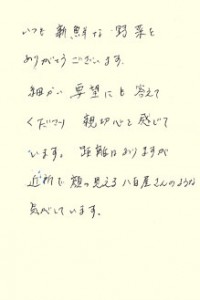 いつも 新鮮な 野菜を
ありがとうございます。
細かい 要望にも 答えて
くださり 親切心と感じて
います。 距離はありますが
近所で 顔の見える 八百屋さんのような
気がしています。